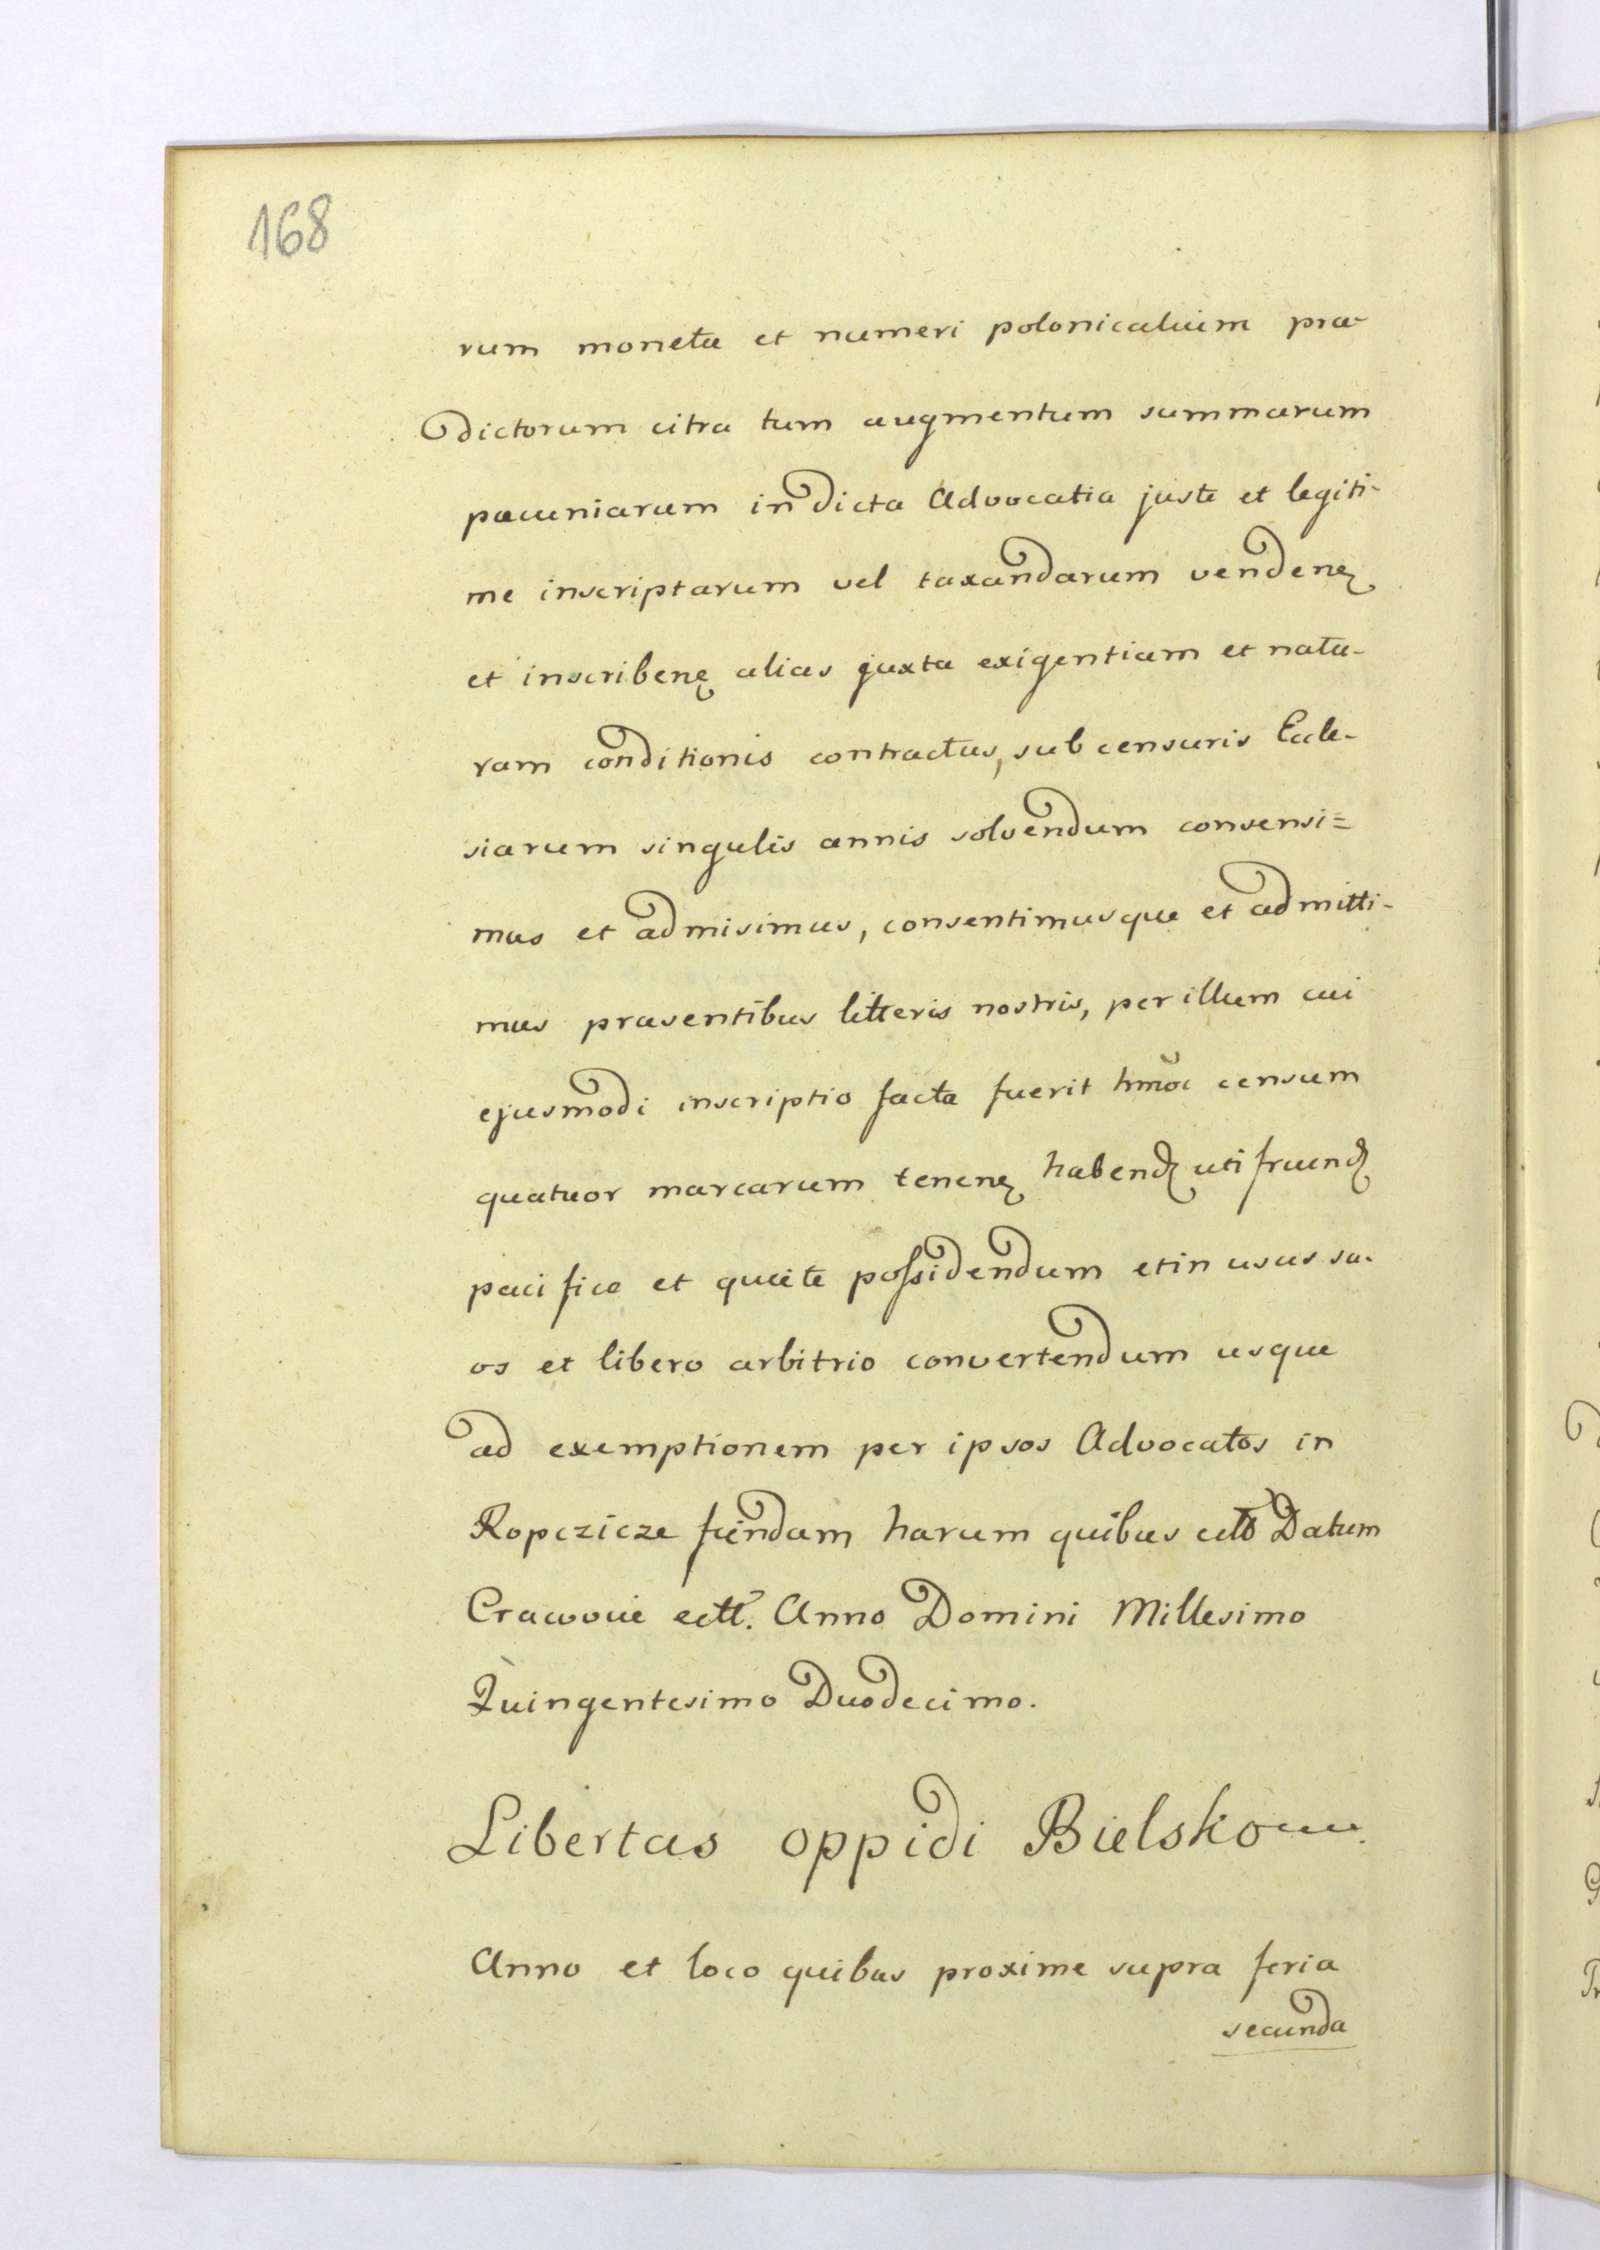 168
rum moneta et numeri polonicalium præ-
dictorum citra tum augmentum summarum
pæcuniarum in dicta Advocatia juste et legiti-
me inscriptarum vel taxandarum vendenȩ
et inscribenȩ alias juxta exigentiam et natu-
ram conditionis contractus, sub censuris Eccle-
siarum singulis annis solvendum consensi=
mus et admisimus, consentimusque et admitti-
mus præsentibus litteris nostris, per illum cui
ejusmodi inscriptio facta fuerit hm̃oi censum
quatuor marcarum tenenȩ habenȡ uti fruenȡ
pacifice et quiete possidendum et in usus su-
os et libero arbitrio convertendum usque
ad exemptionem per ipsos Advocatos in
Ropczicze fiendam harum quibus ectt Datum
Cracovie ectt. Anno Domini Millesimo
Quingentesimo Duodecimo.
Libertas oppidi Bielsko
Anno et loco quibus proxime supra feria
secunda